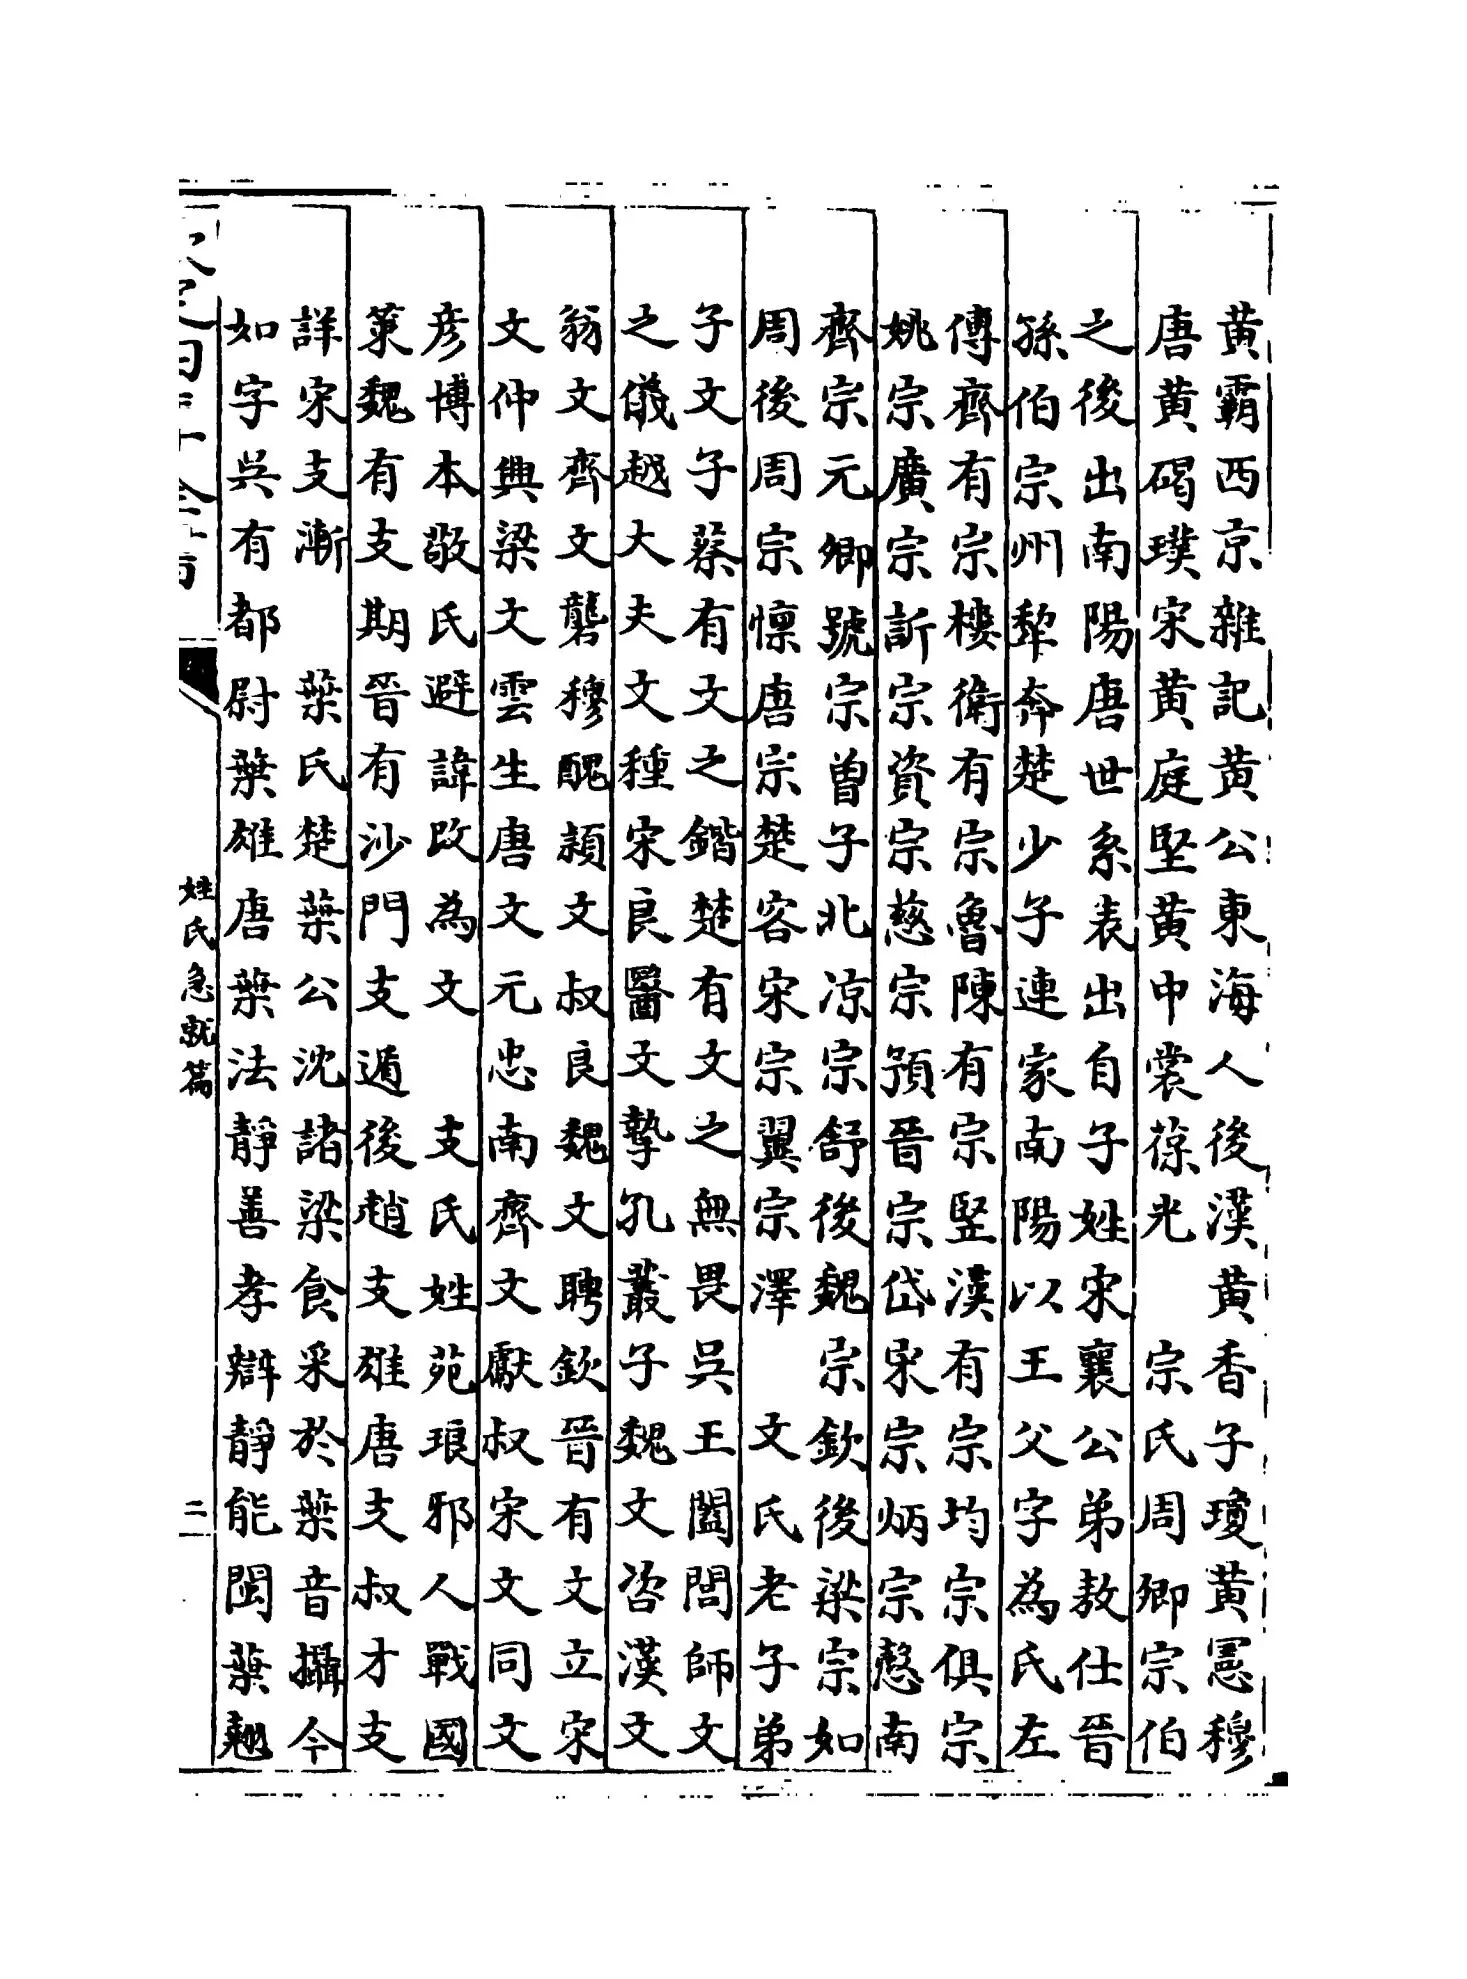 黄霸西京雜記黄公東海人後漢黄香子瓊黄憲穆
唐黄碣璞宋黄庭堅黄中裳葆光　宗氏周卿宗伯
之後出南陽唐世系表出自子姓宋襄公弟敖仕晉
孫伯宗州犂奔楚少子連家南陽以王父字為氏左
傳齊有宗樓衛有宗魯陳有宗豎漢有宗均宗俱宗
姚宗廣宗訢宗資宗慈宗預晉宗岱宋宗炳宗慤南
齊宗元卿號宗曽子北凉宗舒後魏宗欽後梁宗如
周後周宗懍唐宗楚客宋宗翼宗澤　文氏老子弟
子文子蔡有文之鍇楚有文之無畏吳王闔閭師文
之儀越大夫文種宋良醫文摯孔叢子魏文咨漢文
翁文齊文礱穆醜頴文叔良魏文聘欽晉有文立宋
文仲興梁文雲生唐文元忠南齊文獻叔宋文同文
彦博本敬氏避諱改為文　支氏姓苑琅邪人戰國
策魏有支期晉有沙門支遁後趙支雄唐支叔才支
詳宋支漸　葉氏楚葉公沈諸梁食采於葉音攝今
如字吳有都尉葉雄唐葉法靜善孝辯靜能閩葉翹
姓氏急就篇
二